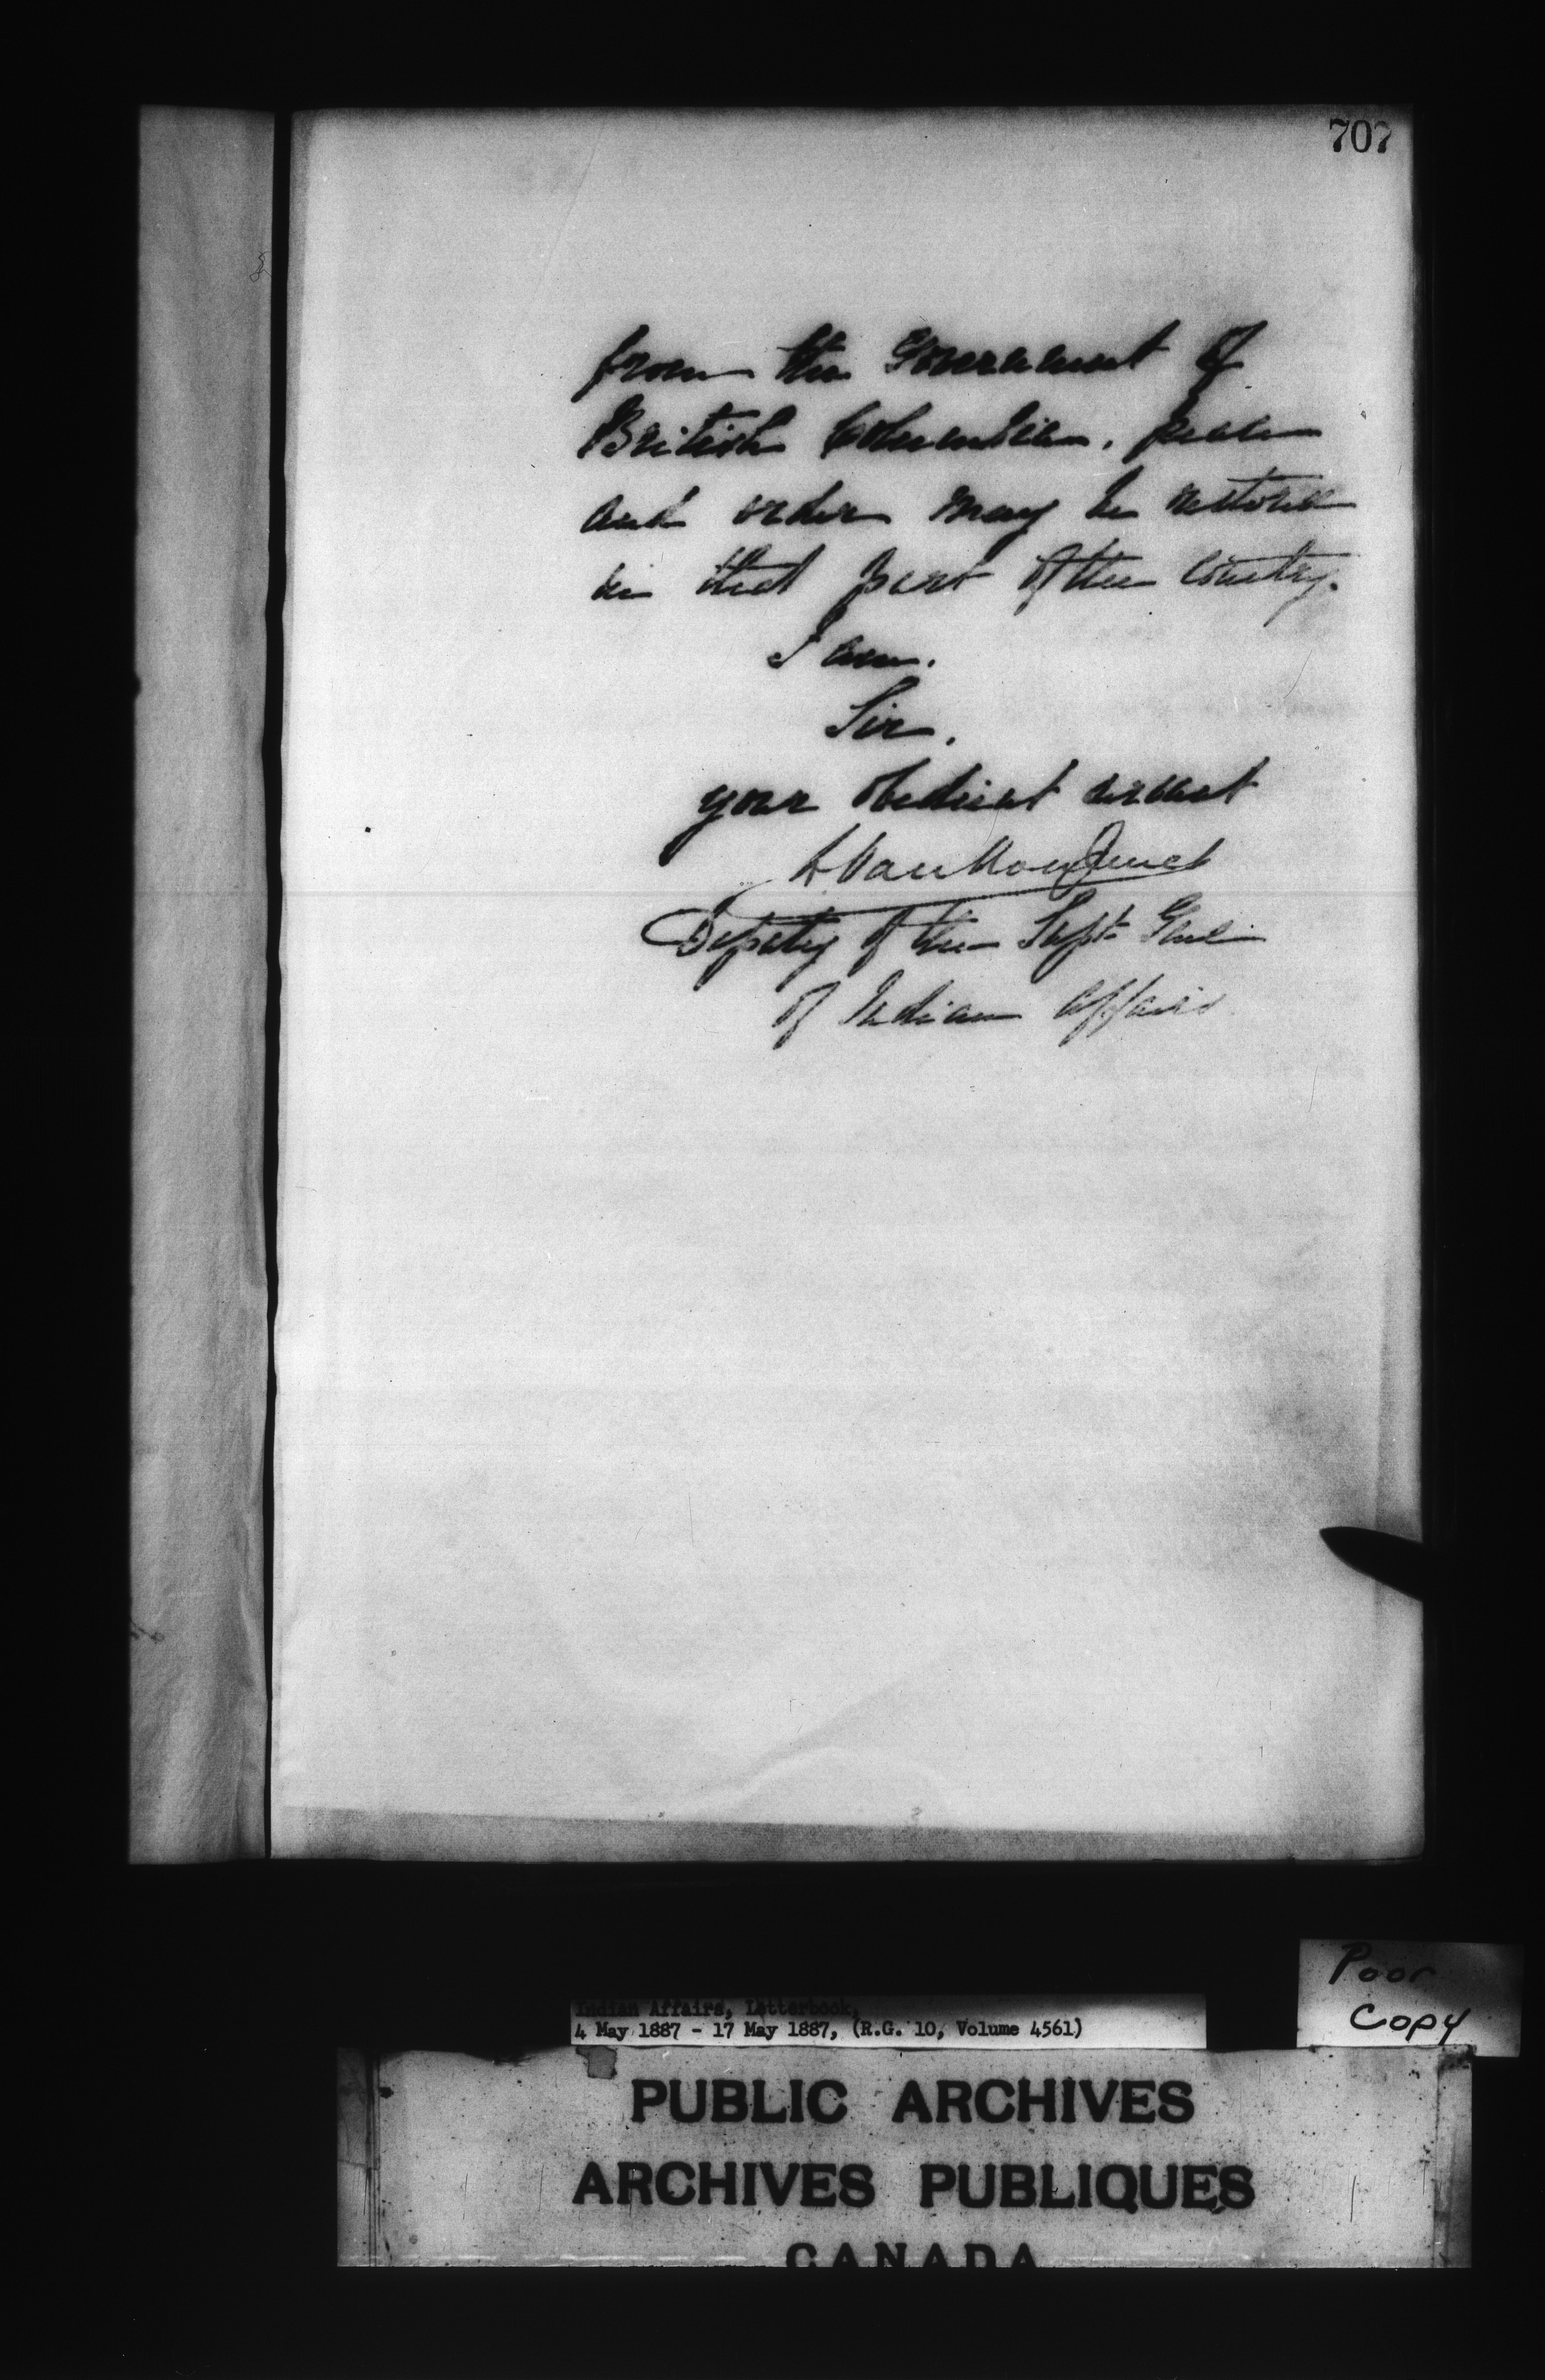 707
from the Government of
British Columbia, peace
and order may be restored
in that part of the Country.
I am.
Sir,
your obedient servant
L Vankoughnet
Deputy of the Supt. Genl
of Indian Affairs
Poor
Copy
Indian Affairs, Letterbook,
4 May 1887 - 17 May 1887, (R.G. 10, Volume 4561)
PUBLIC ARCHIVES
ARCHIVES PUBLIQUES
CANADA